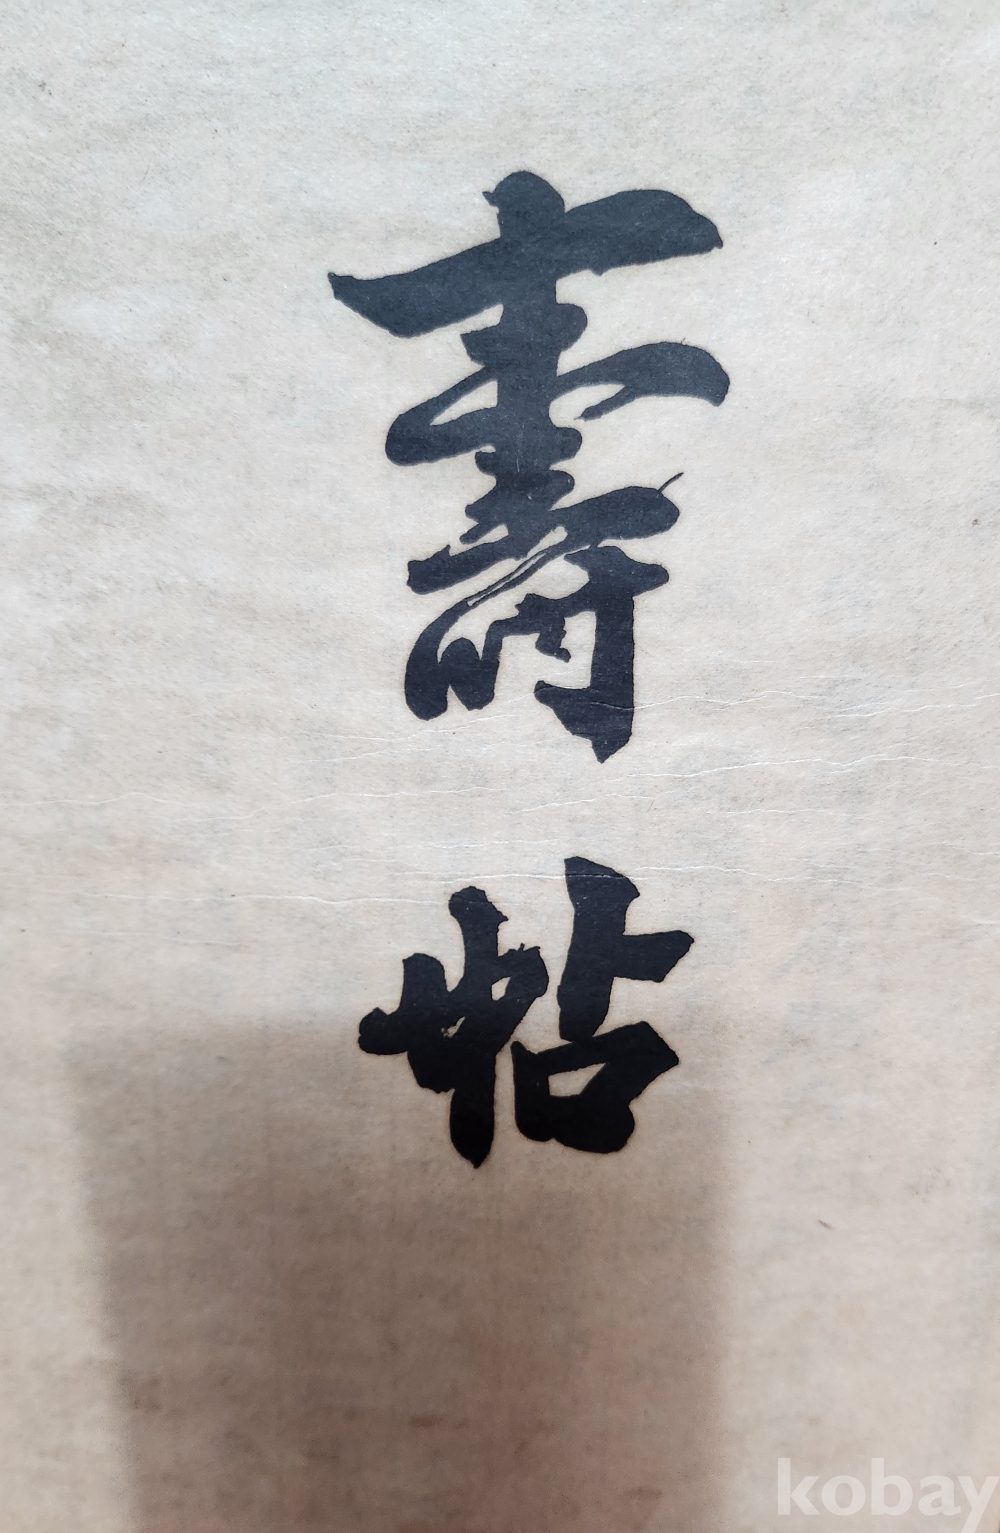 壽帖
kobay